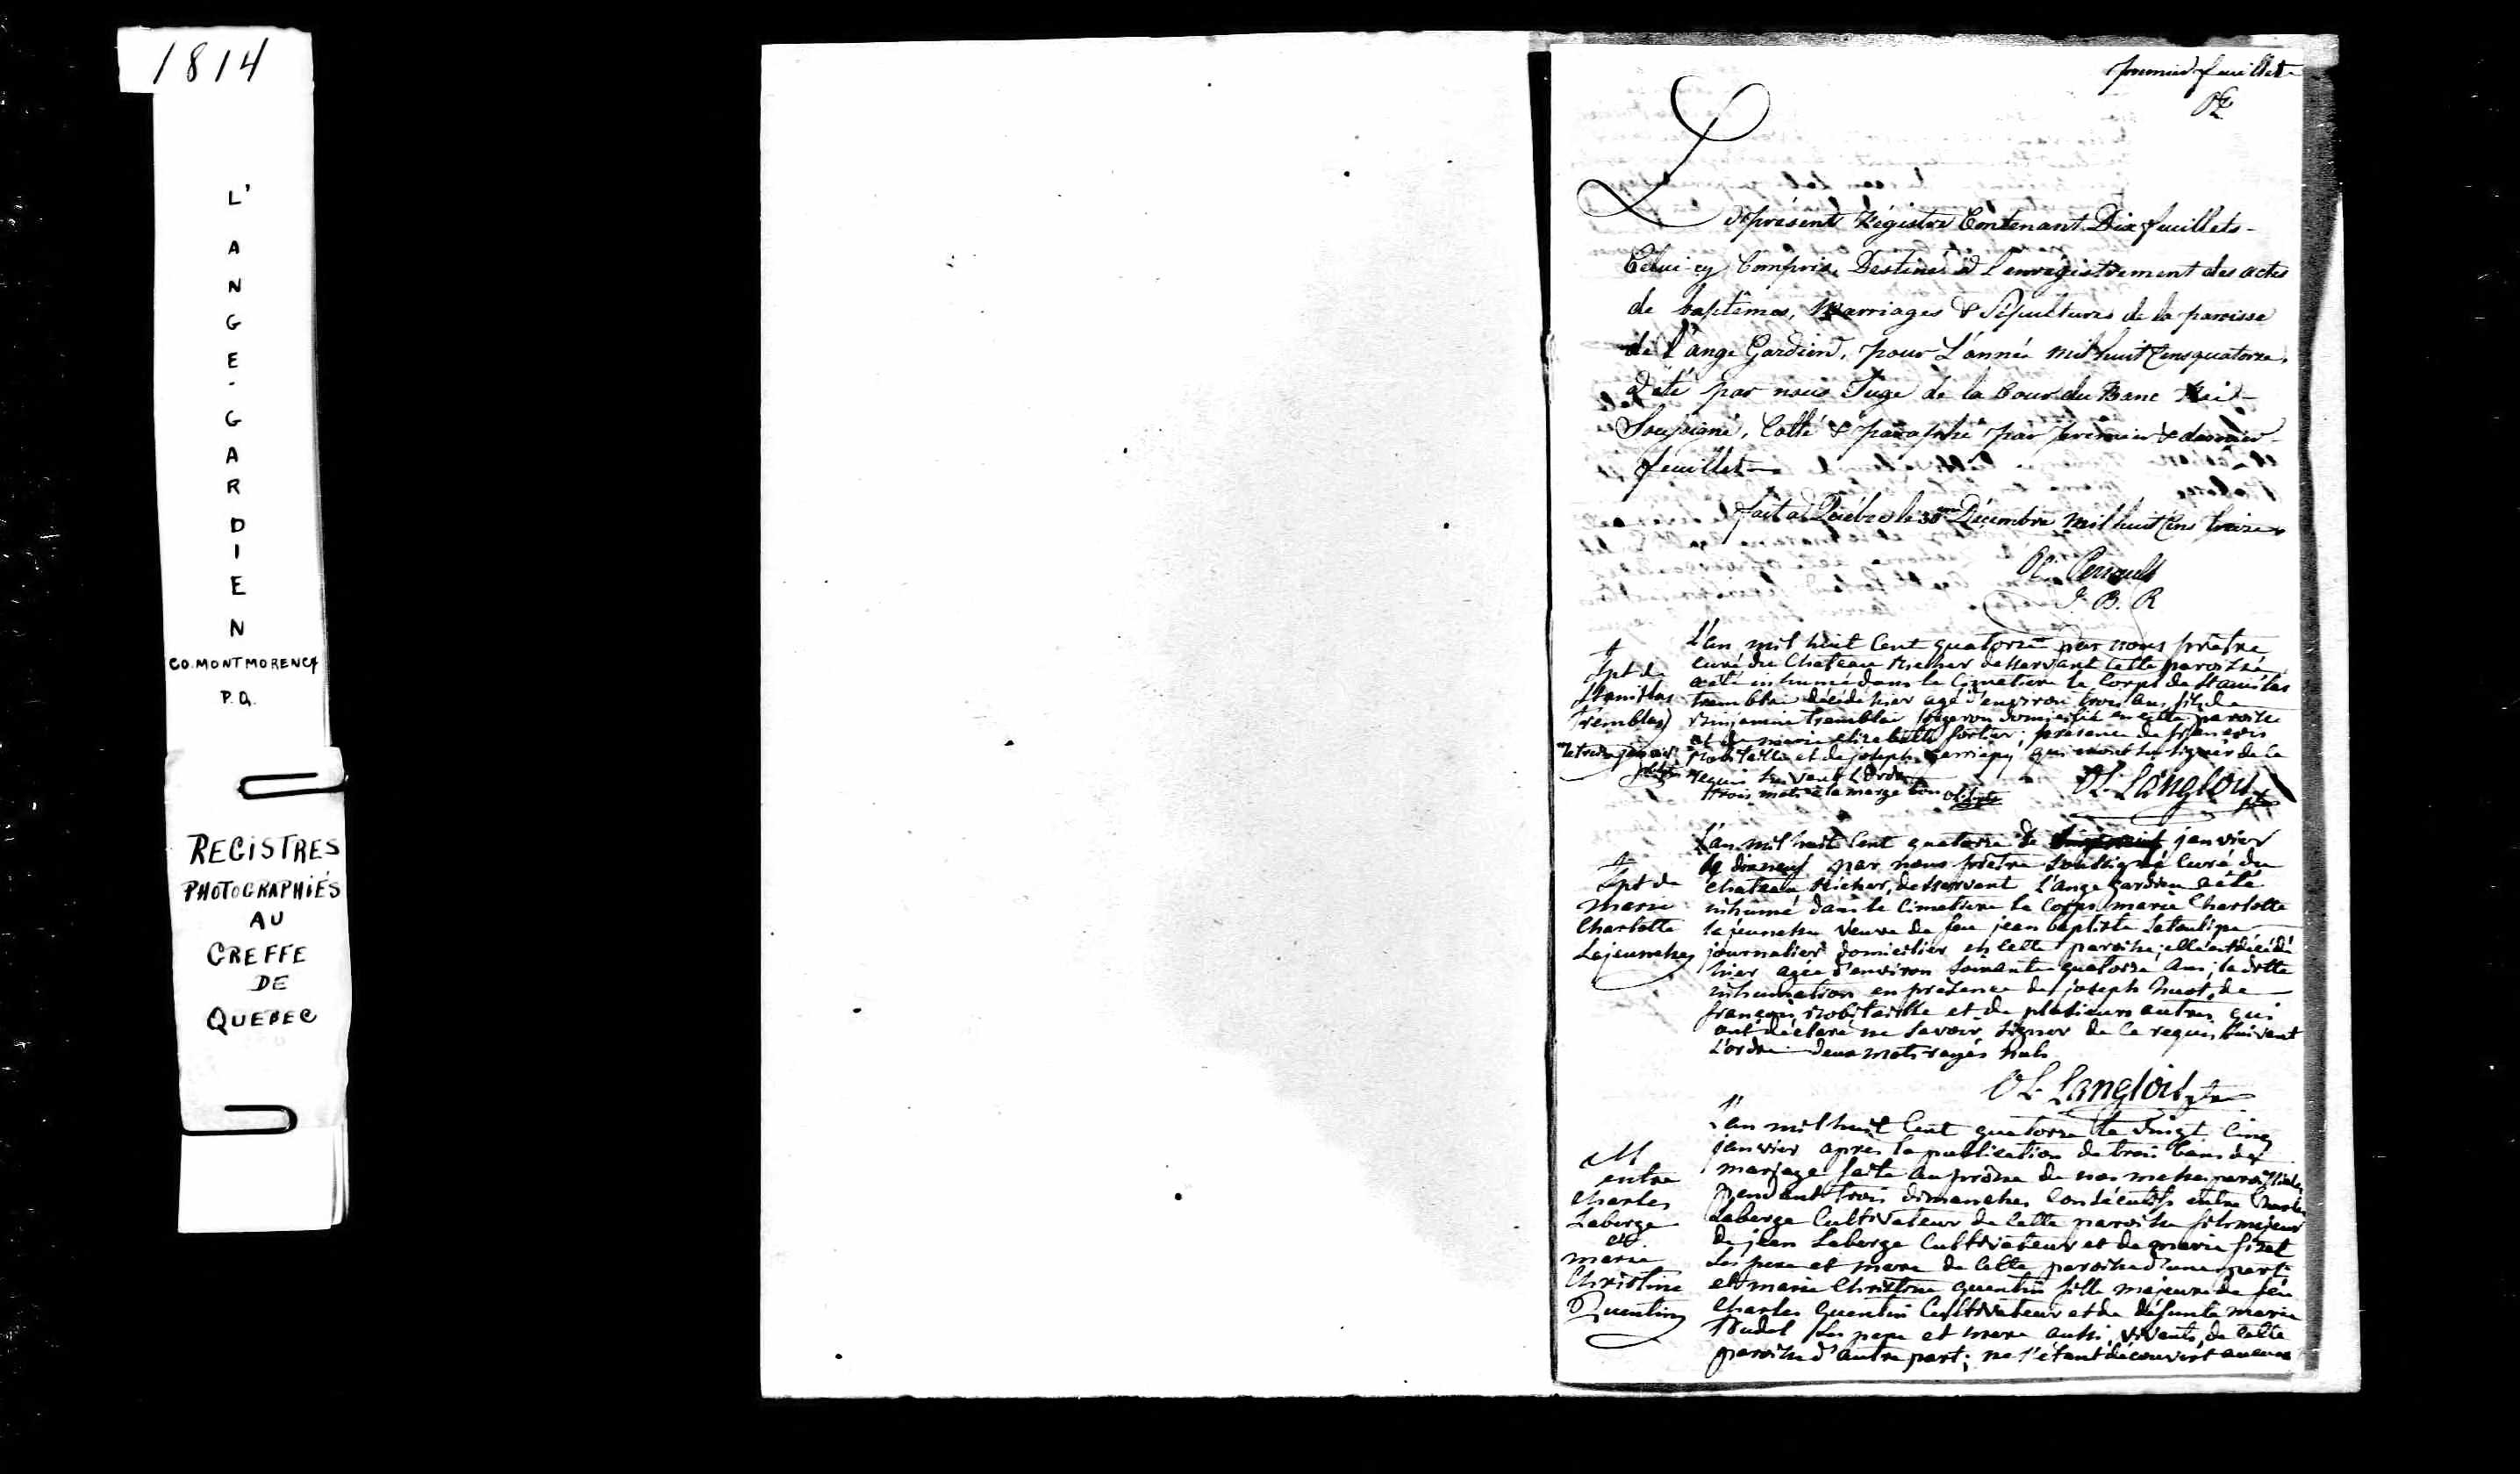 1814
L'
A
N
G
E
-
G
A
R
D
I
E
N
CO. MONTMORENCY
P.Q.
REGISTRES
PHOTOGRAPHIÉS
AU
GREFFE
DE
QUEBEC
premier feuillet
Le présent Régistre Contenant Dix feuillets
Celui-cy Compris, Destiné à l'enregistrement des actes
de baptêmes, Marriages & Sépultures de la paroisse
de l'ange Gardien, pour L'année mil huit Cens quatorze,
a été par nous Juge de la Cour du Banc Roi
Soussigné, Cotté & paraphé par premier & dernier
feuillet
fait à Québec le 30 Décembre mil huit Cens treize
Ol. Perrault
J. B. R
L'an mil huit Cent quatorze par nous prêtre
curé du Chateau Richer desservant Cette paroisse
a été inhumé dans le Cimetiere le Corps de Stanislas
tremblai décédé hier agé d'environ trois ans fils de
Binjamin tremblai forgeron domicilié en cette paroisse
et de marie elizabeth fortier; présence de françois
Robitaille et de joseph qui n'ont su signer de ce
requis suivant L'ordre
trois mots à la marge bon
Ol. Langlois ptre
Spt de
Stanislas
Tremblay
le treize janvier
L'an mil huit Cent quatorze le janvier
le dixneuf par nous prêtre soussigné Curé du
Chateau Richer, desservant L'Ange gardien a été
inhumé dans le Cimetiere le Corps marie Charlotte
lajeunesse veuve de feu jean baptiste Latulipe
journalier domicilier en Cette paroisse; elle est décédé
hier agée d'environ soixante quatorze ans; la ditte
inhumation en présence de joseph huot, de
françois Robitaille et de plusieurs autres qui
ont déclaré ne savoir signer de Ce requis suivant
L'ordre deux mots rayés nuls
Ol. Langlois ptre
Spt de
Marie
Charlotte
Lajeunesse
L'an mil huit Cent quatorze le vingt Cinq
janvier apres la publication de trois bans de
mariage faite au prône de nos messes paroissiales
pendant trois dimanches Consécutifs entre Charles
Laberge Cultivateur de Cette paroisse fils majeur
de jean Laberge Cultivateur et de marie fiset
ses pere et mere de Cette paroisse d'une part
et marie Christine quentin fille majeure de feu
Charles quentin Cultivateur et de défunte marie
Trudel ses pere et mere aussi, vivants, de Cette
paroisse d'autre part; ne s'étant découvert aucun
M
entre
Charles
Laberge
et
marie
Christine
Quentin